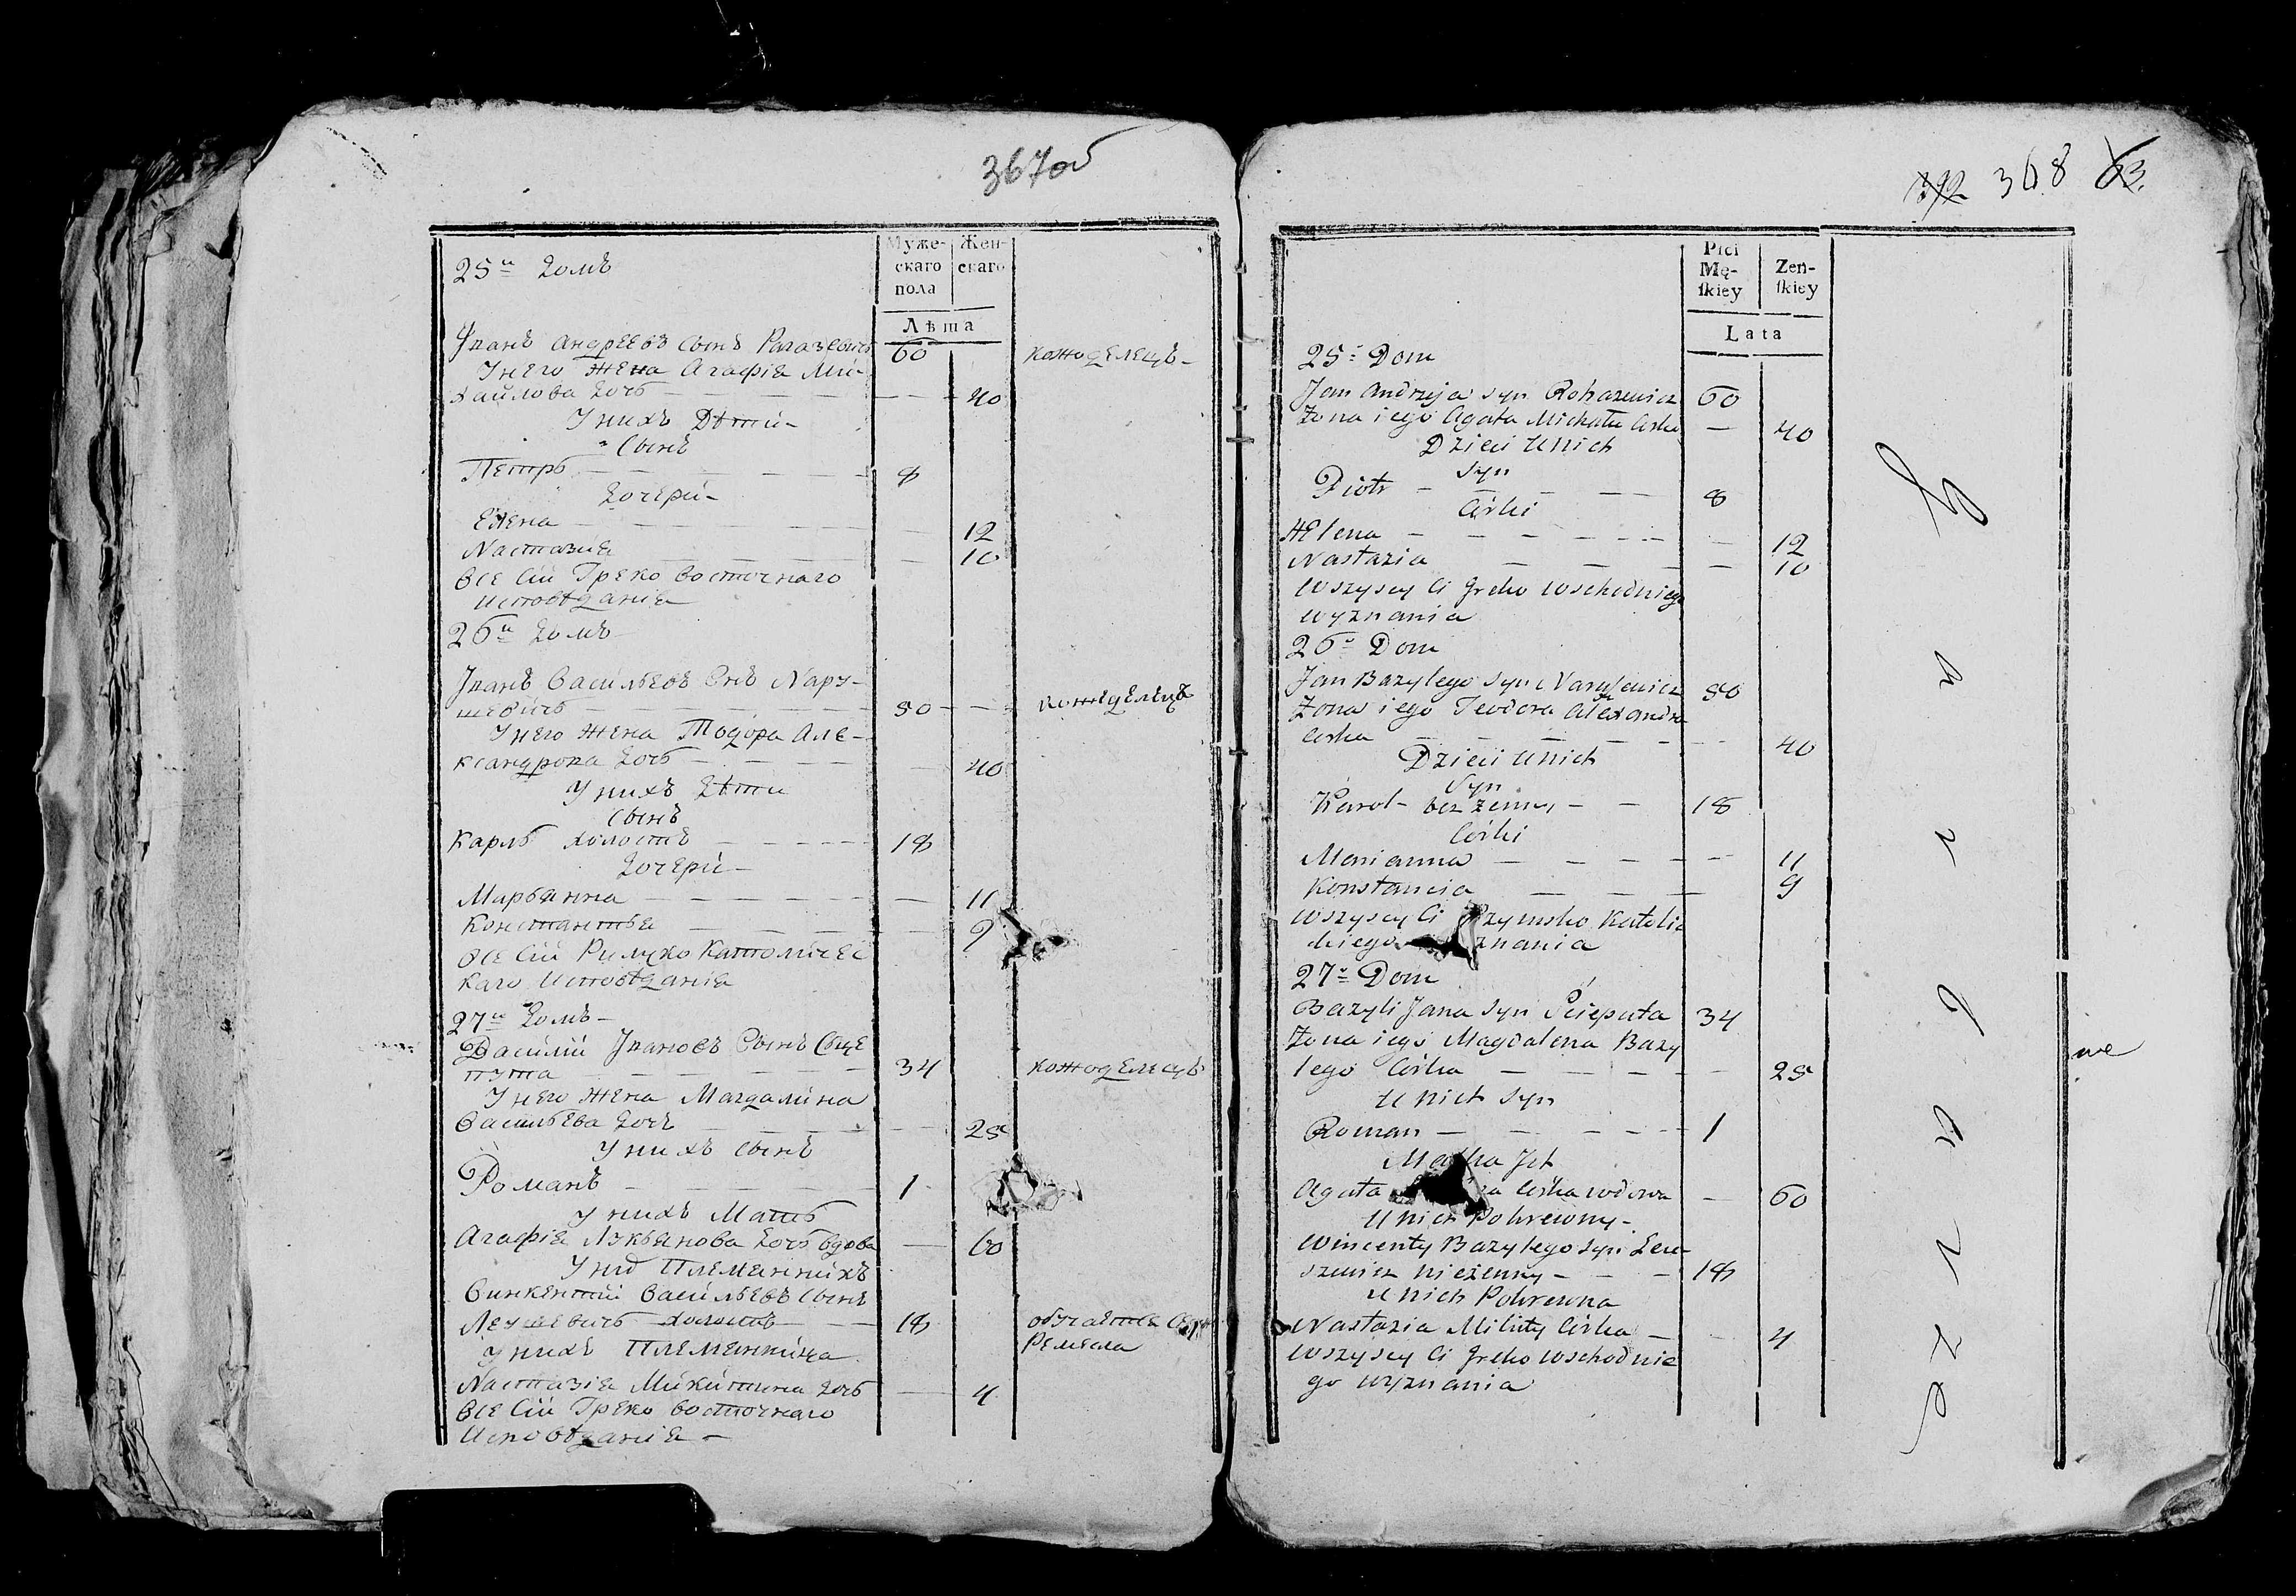 367об
25й домъ
Муже-
скаго
пола
Жен-
скаго
Лѣта
Иванъ Андреевъ сынъ Рагазевичъ 60 кожоделецъ
У него жена Агафія Ми-
хайлова дочь 40
У нихъ Дѣти
Сынъ
Петръ 8
дочери
Елена 12
Настазия 10
Все сіи Греко восточнаго
исповѣданія
26й домъ
Иванъ Васильевъ Снъ Нару-
шевичъ 50 кожеделецъ
У него жена Тодора Але-
ксандрова дочь 40
У нихъ дѣти
сынъ
Карлъ холостъ 18
дочери
Марьянна 11
Константья 9
все сіи Римско Католичес
каго исповѣданія
27й домъ
Василій Ивановъ Сынъ Сце
пута 34 кожоделецъ
У него жена Магдалина
Васильева дочь 25
У нихъ сынъ
Романъ 1
У нихъ Мать
Агафія Лукьянова дочь вдова 60
У них племянникъ
Винкентій Васильевъ сынъ
Леушевичъ холостъ 18 обучается
Ремесла
У нихъ племянница
Настазія Микитина дочь 4
все сіи Греко восточнаго
исповѣданія
392 368 63.
Płci
Mę-
skiey
Zeń-
skiey
Lata
25. Dom
Jan Andrzeja syn Rohazewicz 60
Zona iego Agata Michała Córka 40
Dzieci u nich
Syn
Piotr 8
Córki
Helena 12
Nastazia 10
Wszyscy Ci Greko Wschodniego
wyznania
26. Dom
Jan Bazylego syn Naruszewicz 50
Zona iego Teodora Alexandra
Córka 40
Dzieci u nich
Syn
Karol bez żenny 18
Córki
Marianna 11
Konstancia 9
Wszyscy Ci Rzymsko Katolic
kiego znania
27. Dom
Bazyli Jana syn Ścieputa 34
Zona iego Magdalena Bazy
lego Córka 25
U nich syn
Roman 1
Matka Ich
Agata Córka wdowa 60
U nich Pokrewny
Wincenty Bazylego syn Leu-
szewicz nieżenny 18
U nich Pokrewna
Nastazia Mikity Córka 4
Wszyscy Ci Greko Wschodnie
go wyznania